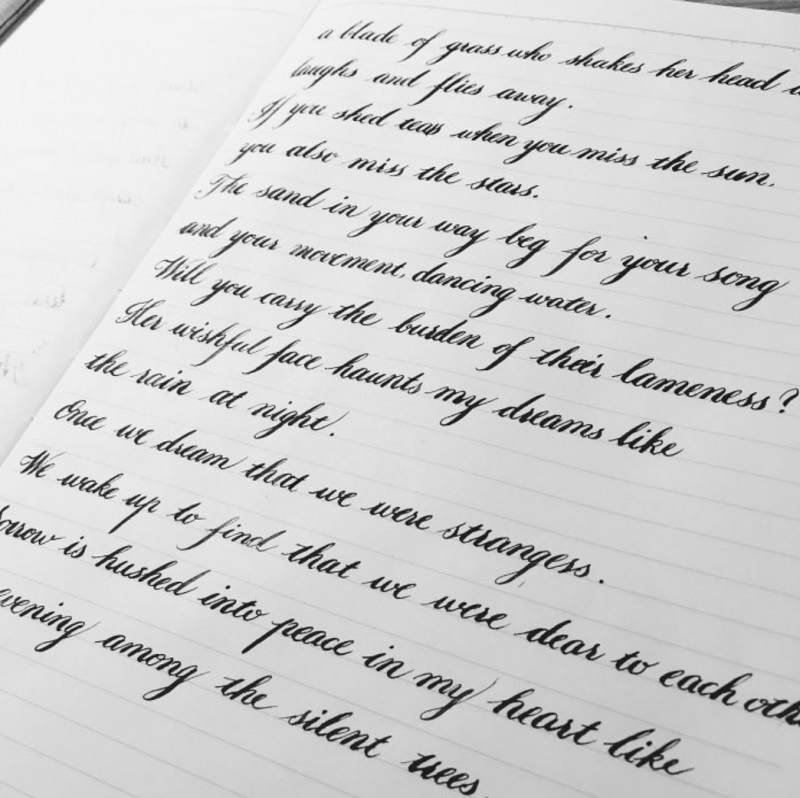 a blade of grass who shakes her head
laughs and flies away.
If you shed tears when you miss the sun,
you also miss the stars.
The sand in your way beg for your song
and your movement, dancing water.
Will you carry the burden of their lameness?
Her wishful face haunts my dreams like
the rain at night.
Once we dream that we were strangers.
We wake up to find that we were dear to each oth
orrow is hushed into peace in my heart like
evening among the silent trees.